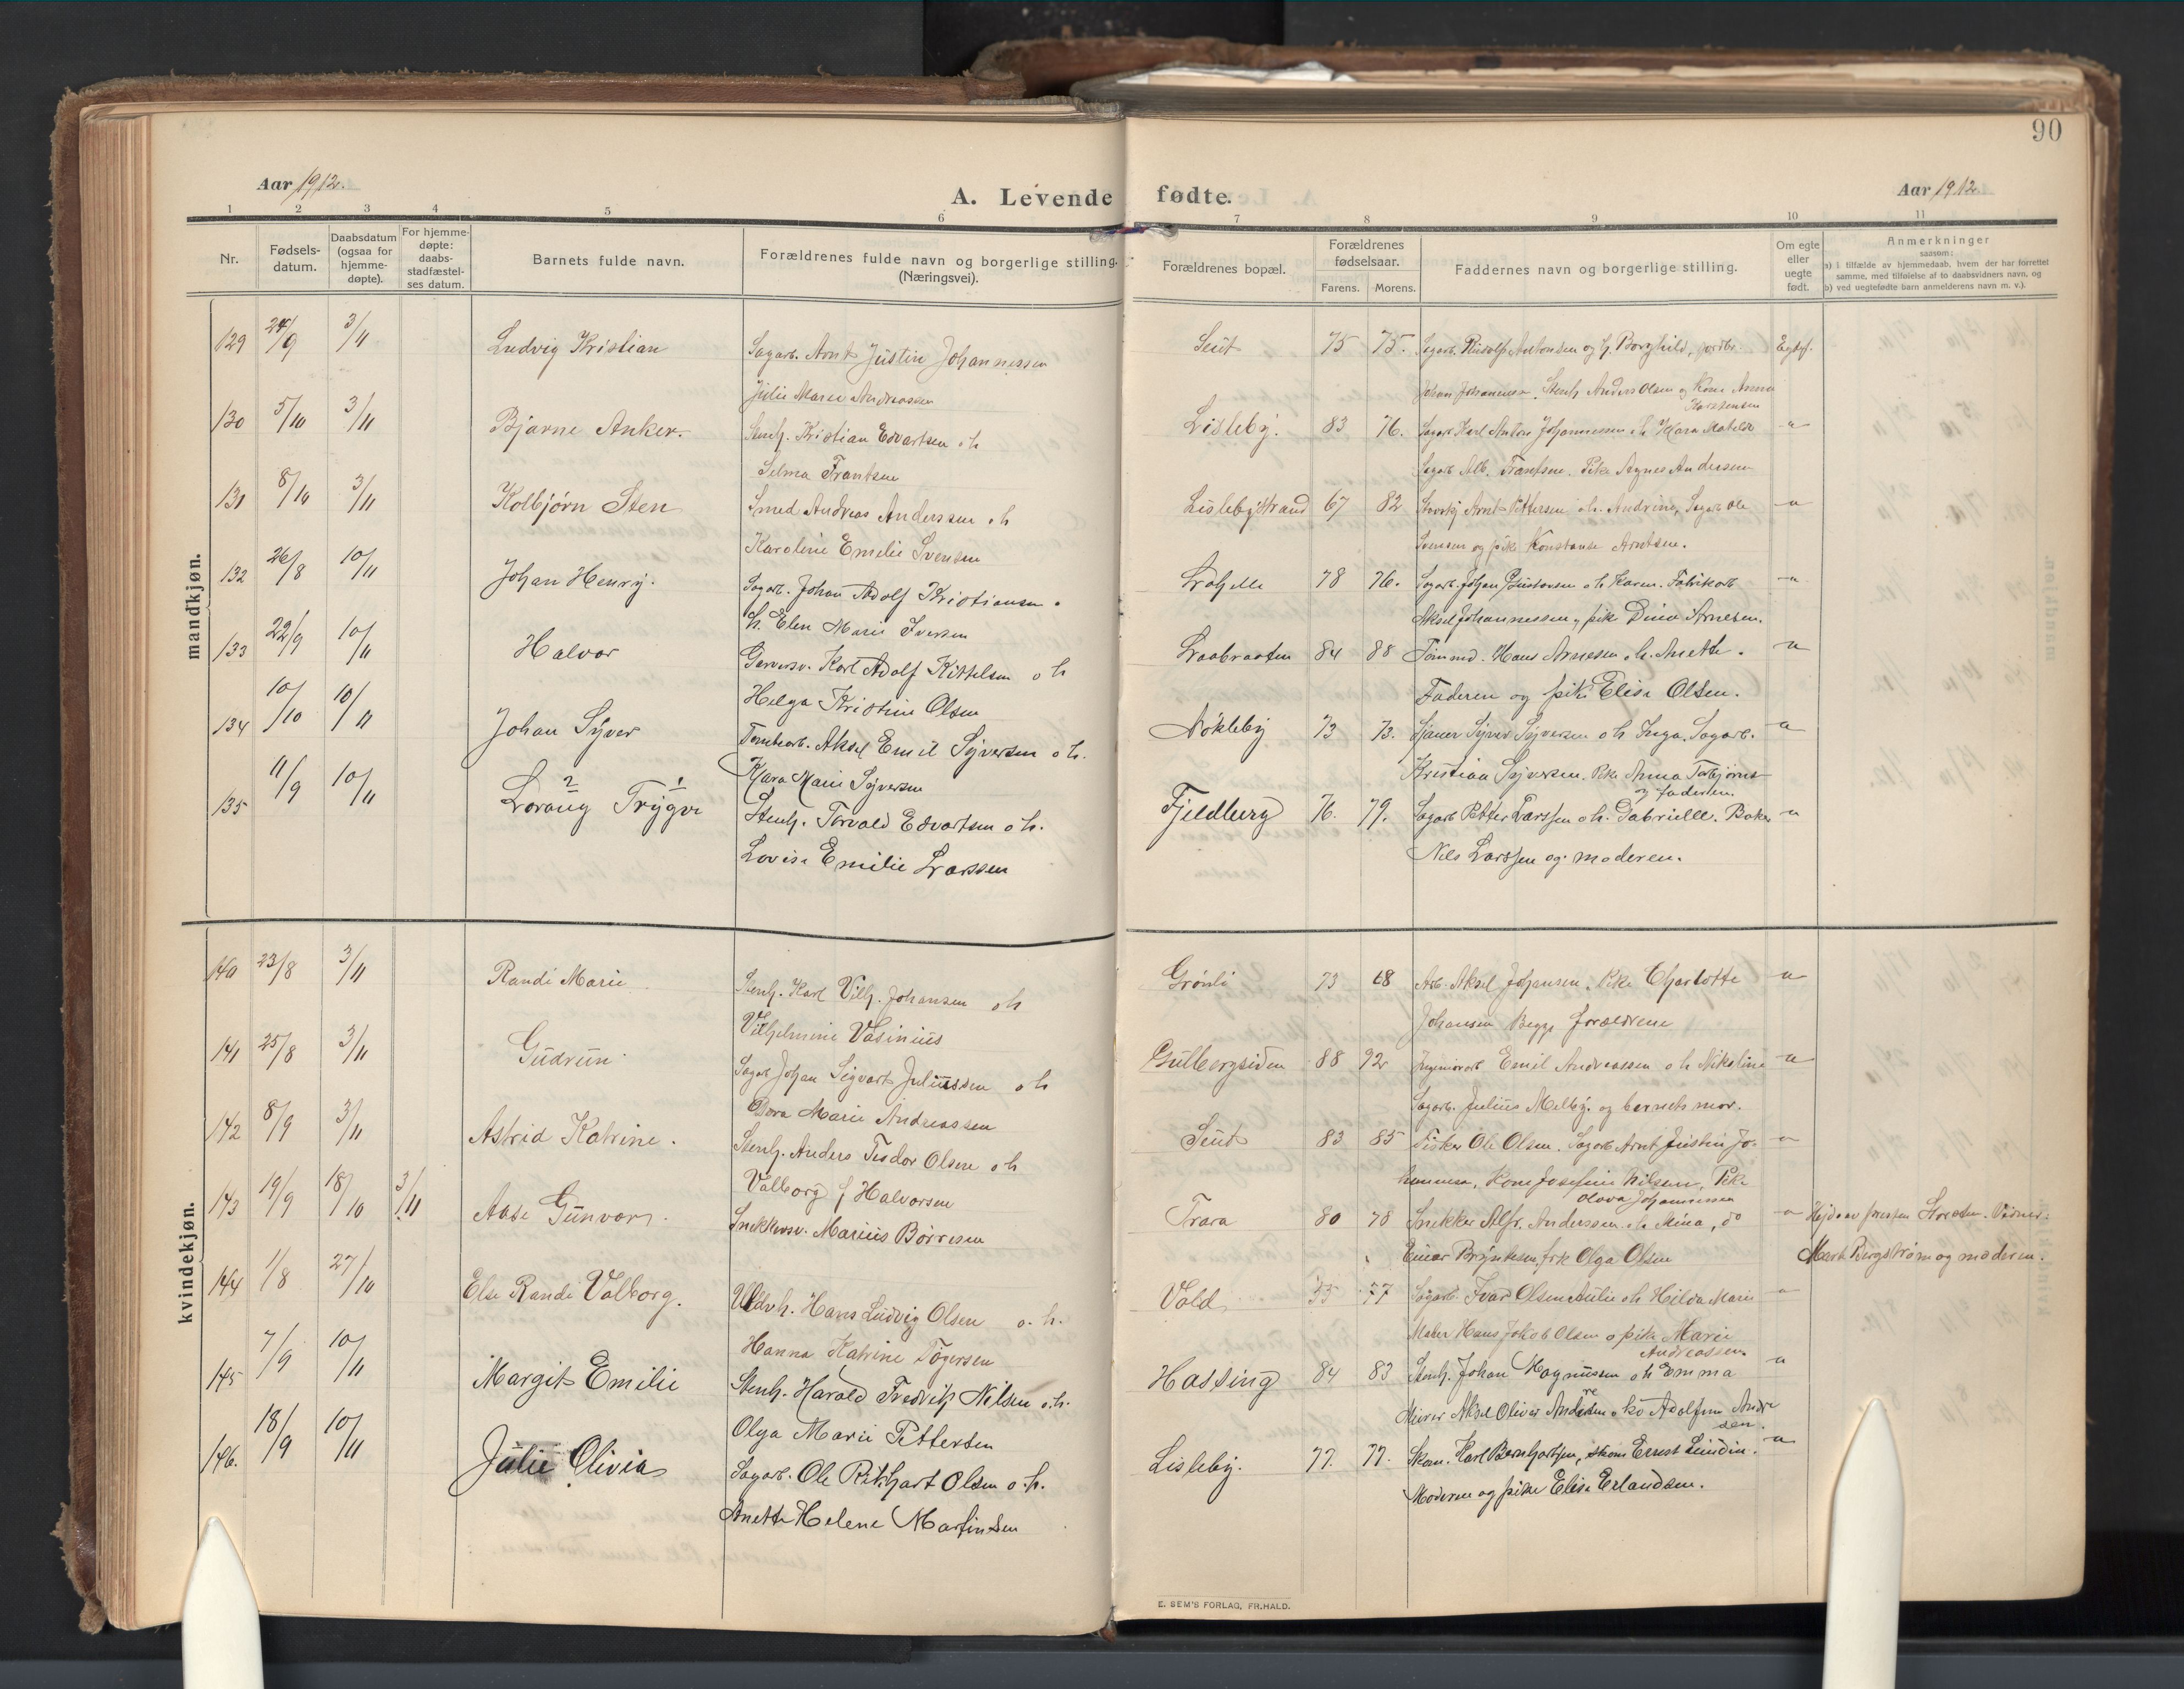 90
Aar 1912.
A. Levende fødte.
Aar 1912
1 2 3 4 5 6 7 8 9 10 11
Nr.
Fødsels-
datum.
Daabsdatum
(ogsaa for
hjemme-
døpte).
For hjemme-
døpte:
daabs-
stadfæstel-
ses datum.
Barnets fulde navn.
Forældrenes fulde navn og borgerlige stilling.
(Næringsvei).
Forældrenes bopæl.
Forældrenes
fødselsaar.
Farens. Morens.
Faddernes navn og borgerlige stilling.
Om egte
eller
uegte
født.
Anmerkninger
saasom:
a) i tilfælde av hjemmedaab, hvem der har forrettet
samme, med tilføielse af to daabsvidners navn, og
b) ved uegtefødte barn anmelderens navn m. v.).
mandkjøn.
129 24/9 3/11 Ludvig Kristian Sagarb. Arnt Justin Johannessen Seut 75 75. Sagarb. Rudolf Antonsen og h. Borghild, Egtef.
Julie Marie Andreassen Johan Johannessen, Stenh. Anders Olsen og Kone Anna
130 5/10 3/11 Bjarne Anker. Stenh. Kristian Edvartsen o h Lisleby. 83 76. Sagarb. Karl Anton Johannessen o h Klara Matelde -"-
Selma Frantsen Sagarb Alb. Frantsen. Pike Agnes Andersen
131 8/10 3/11 Kolbjørn Sten Smed Andreas Anderssen o h Lislebystrand 67 82 Arnt Pettersen o h. Andrine, Sagarb Ole -"-
Karoline Emelie Svensen Svensen og pike Konstanse Arntsen.
132 26/8 10/11 Johan Henry. Sagarb. Johan Adolf Kristiansen o 78 76. Sagarb. Johan Gustavsen o h Karen. Fabrikarb -"-
h. Elen Marie Iversen Aksel Johannessen, pike Dina Arnesen.
133 22/9 10/11 Halvor Garversv. Karl Adolf Kittelsen o h Braabraaten 84 88 Tømmd. Hans Arnesen o h. Anette. -"-
Helga Kristine Olsen Faderen og pike Elise Olsen.
134 10/10 10/11 Johan Syver Tomtearb. Aksel Emil Syversen o h. Nøkleby 73 73. Syver Syversen o h Inga. Sagarb. -"-
Klara Marie Syversen Kristian Syversen. Pike Anna Torbjørns
og faderen.
135 11/9 10/11 2 Lorang 1 Trygve Stenh. Torvald Edvartsen o h. Fjeldberg 76. 79. Sagarb Petter Larssen o h. Gabrielle. Baker -"-
Lovise Emilie Larssen Nils Larssen og moderen.
kvindekjøn.
140 23/8 3/11 Randi Marie Stenh. Karl Vilh. Johansen o h Grønli 73 68 Arb. Aksel Johansen. Pike Charlotte -"-
Vilhelmine Vasinius Johansen Begge forældrene
141 25/8 3/11 Gudrun Sagarb Johan Sigvart Juliussen o h Gulbergsiden 88 92 Emil Andreassen o h Nikoline -"-
Dora Marie Andreassen Sagarb. Julius Melby. og barnets mor.
142 8/9 3/11 Astrid Katrine. Stenh. Anders Teodor Olsen o h Seut 83 85 Fisker Ole Olsen. Sagarb Arnt Justin Jo- -"-
Valborg f Halvorsen hannessen, Kone Josefine Nilsen, Pike
Olava Johannessen
143 19/9 18/10 3/11 Aase Gunvor. Snekkersv. Marius Børresen Trara 80 78 Snekker Alfr. Anderssen o h Mina, do -"-
Einar Bryntesen, frk Olga Olsen Marta Bergstrøm og moderen.
144 1/8 27/10 Else Randi Valborg. Hans Ludvig Olsen o. h. Vold 55 77 Sagarb. Ivar Olsen o h Hilda Marie -"-
Hanna Katrine Tøgersen Maler Hans Jakob Olsen o pike Marie
Andreassen.
145 7/9 10/11 Margit Emilie Stenh. Harald Fredrik Nilsen o. h. Hassing 84 83 Stenh. Johan Magnussen o h Emma -"-
Olga Marie Pettersen Murer Aksel Oliver Andersen o ko Adolfine
146. 18/9 10/11 Julie Olivia Sagarb. Ole Rikhart Olsen o. h. Lisleby. 77. 77. Skom. Karl Bernhartsen, skom Ernst Lundin. -"-
Anette Helene Martinsen Moderen og pike Elise Erlandsen.
E. SEM'S FORLAG, FR.HALD.